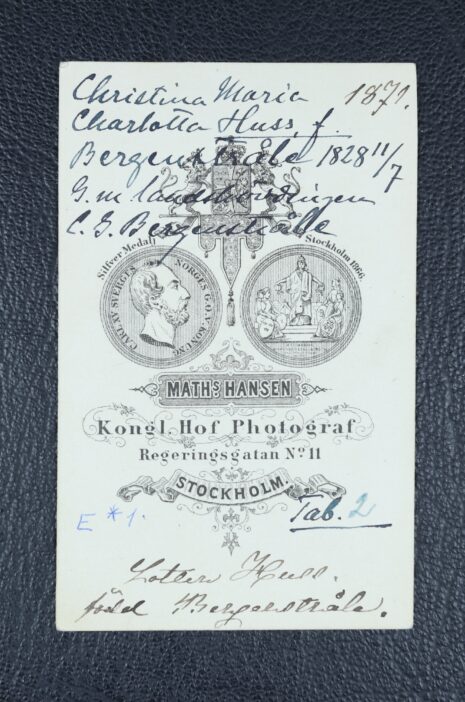 Christina Maria 1871.
Charlotta Huss, f
Bergenstråle 1828 11/7
G. m landshövdingen
C. G. Bergenstråhle
Silfver Medalj Stockholm 1866
CARL XV SVERGES NORGES G. O. V. KONUNG
MATHS HANSEN
Kongl. Hof Photograf
Regeringsgatan No 11
STOCKHOLM.
Tab. 2
E *1.
Lotten Huss.
född Bergenstråle.